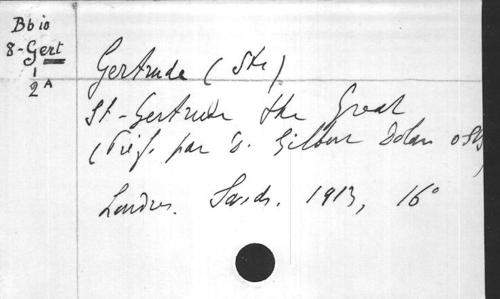 Bb 10
8-Gert
1
2 A
Gertrude (Ste)
St-Gertrude the Great
(Préf. par D. Gilbert Dolan OSB)
Londres. Sands. 1913, 16°